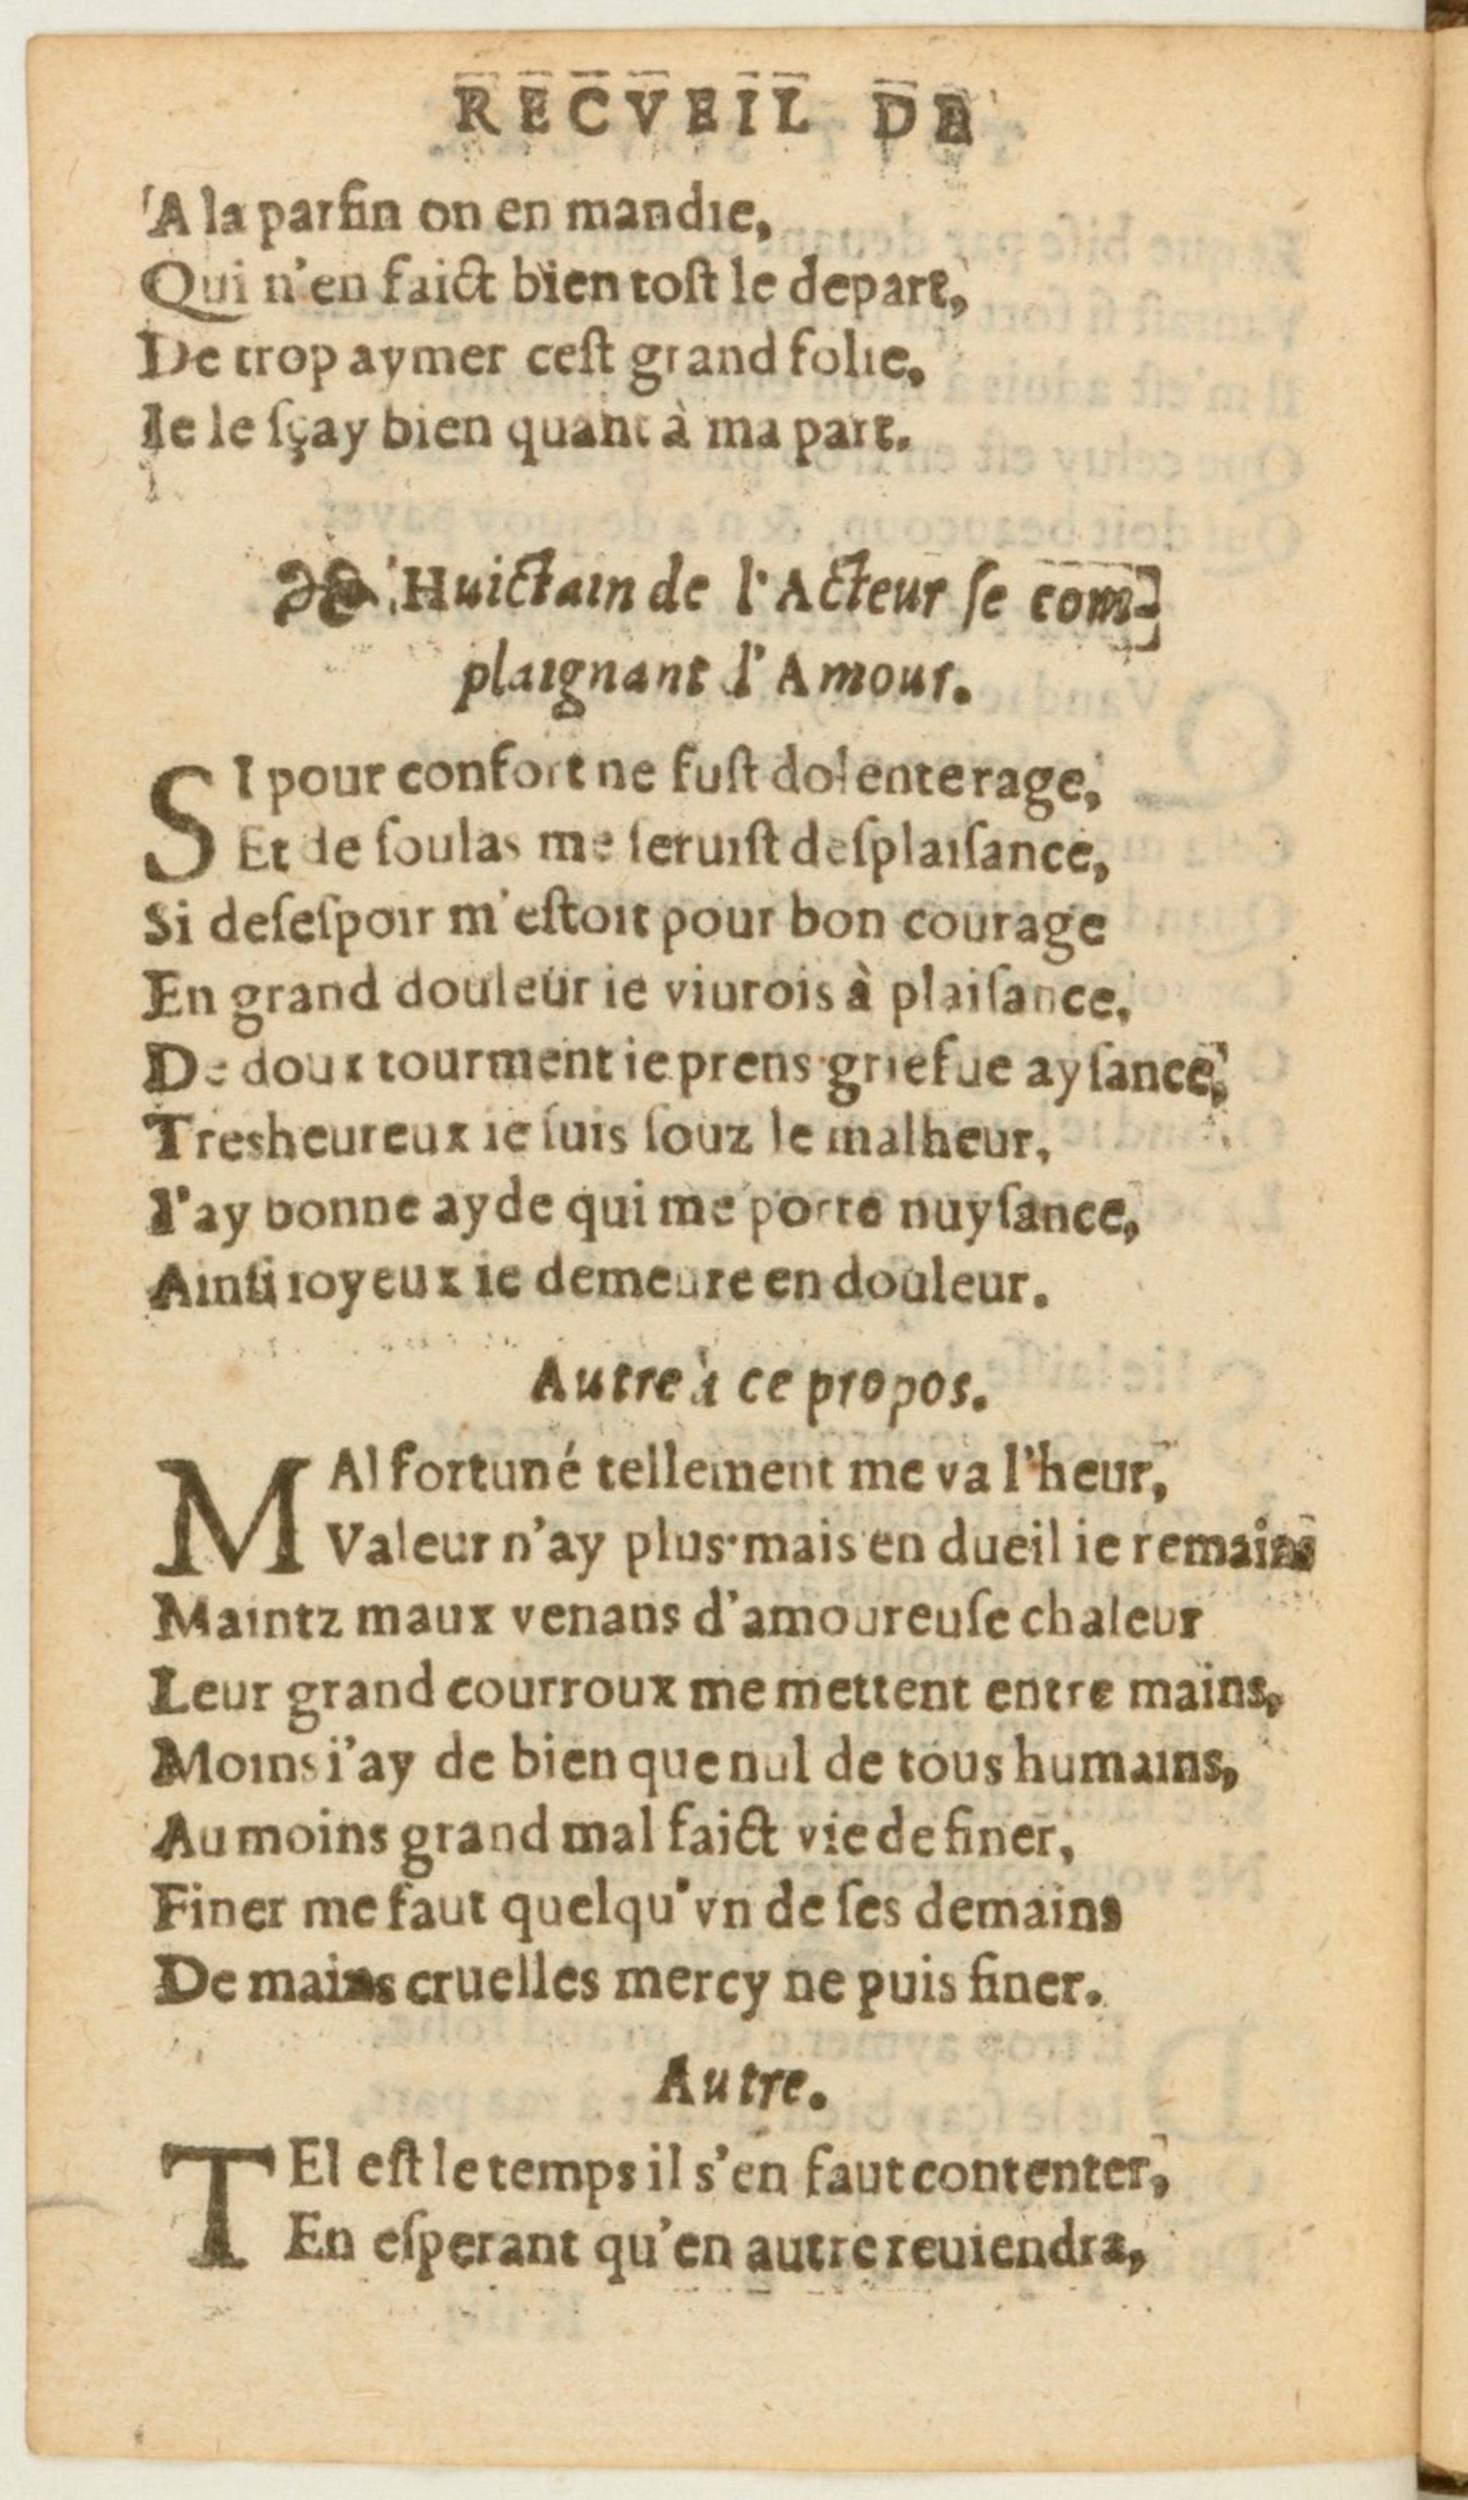 RECVEIL DE
A la parfin on en mandie,
Qui n'en faict bien toſt le depart,
De trop aymer ceſt grand folie,
Ie le ſçay bien quant à ma part.
Huictain de l'Acteur ſe com-
plaignant d'Amour.
SI pour confort ne fuſt dolente rage,
Et de ſoulas me ſeruiſt deſplaiſance,
Si deſeſpoir m'eſtoit pour bon courage
En grand douleur ie viurois à plaiſance,
De doux tourment ie prens griefue ayſance,
Tresheureux ie ſuis ſouz le malheur,
I'ay bonne ayde qui me porte nuyſance,
Ainſi ioyeux ie demeure en douleur.
Autre à ce propos.
MAl fortuné tellement me va l'heur,
Valeur n'ay plus mais en dueil ie remains
Maintz maux venans d'amoureuſe chaleur
Leur grand courroux me mettent entre mains,
Moins i'ay de bien que nul de tous humains,
Au moins grand mal faict vie definer,
Finer me faut quelqu'vn de ſes demains
De mains cruelles mercy ne puis finer.
Autre.
TEl eſt le temps il s'en faut contenter,
En eſperant qu'en autre reuiendra,